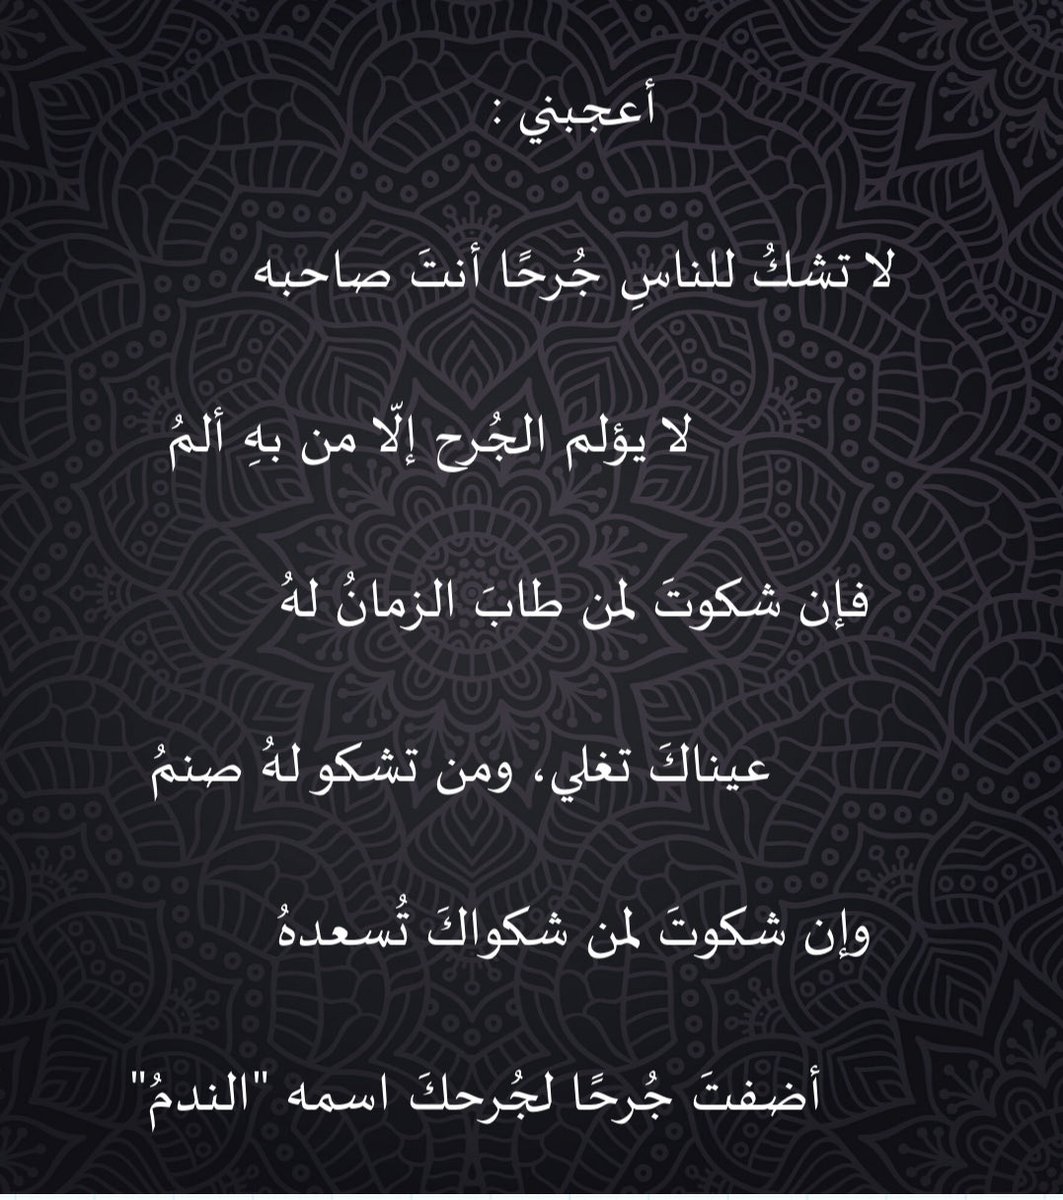 أعجبني :
لا تشكُ للناسِ جُرحًا أنتَ صاحبه
لا يؤلم الجُرح إلّا من بهِ ألمُ
فإن شكوتَ لمن طابَ الزمانُ لهُ
عيناكَ تغلي، ومن تشكو لهُ صنمُ
وإن شكوتَ لمن شكواكَ تُسعدهُ
أضفتَ جُرحًا لجُرحكَ اسمه "الندمُ"